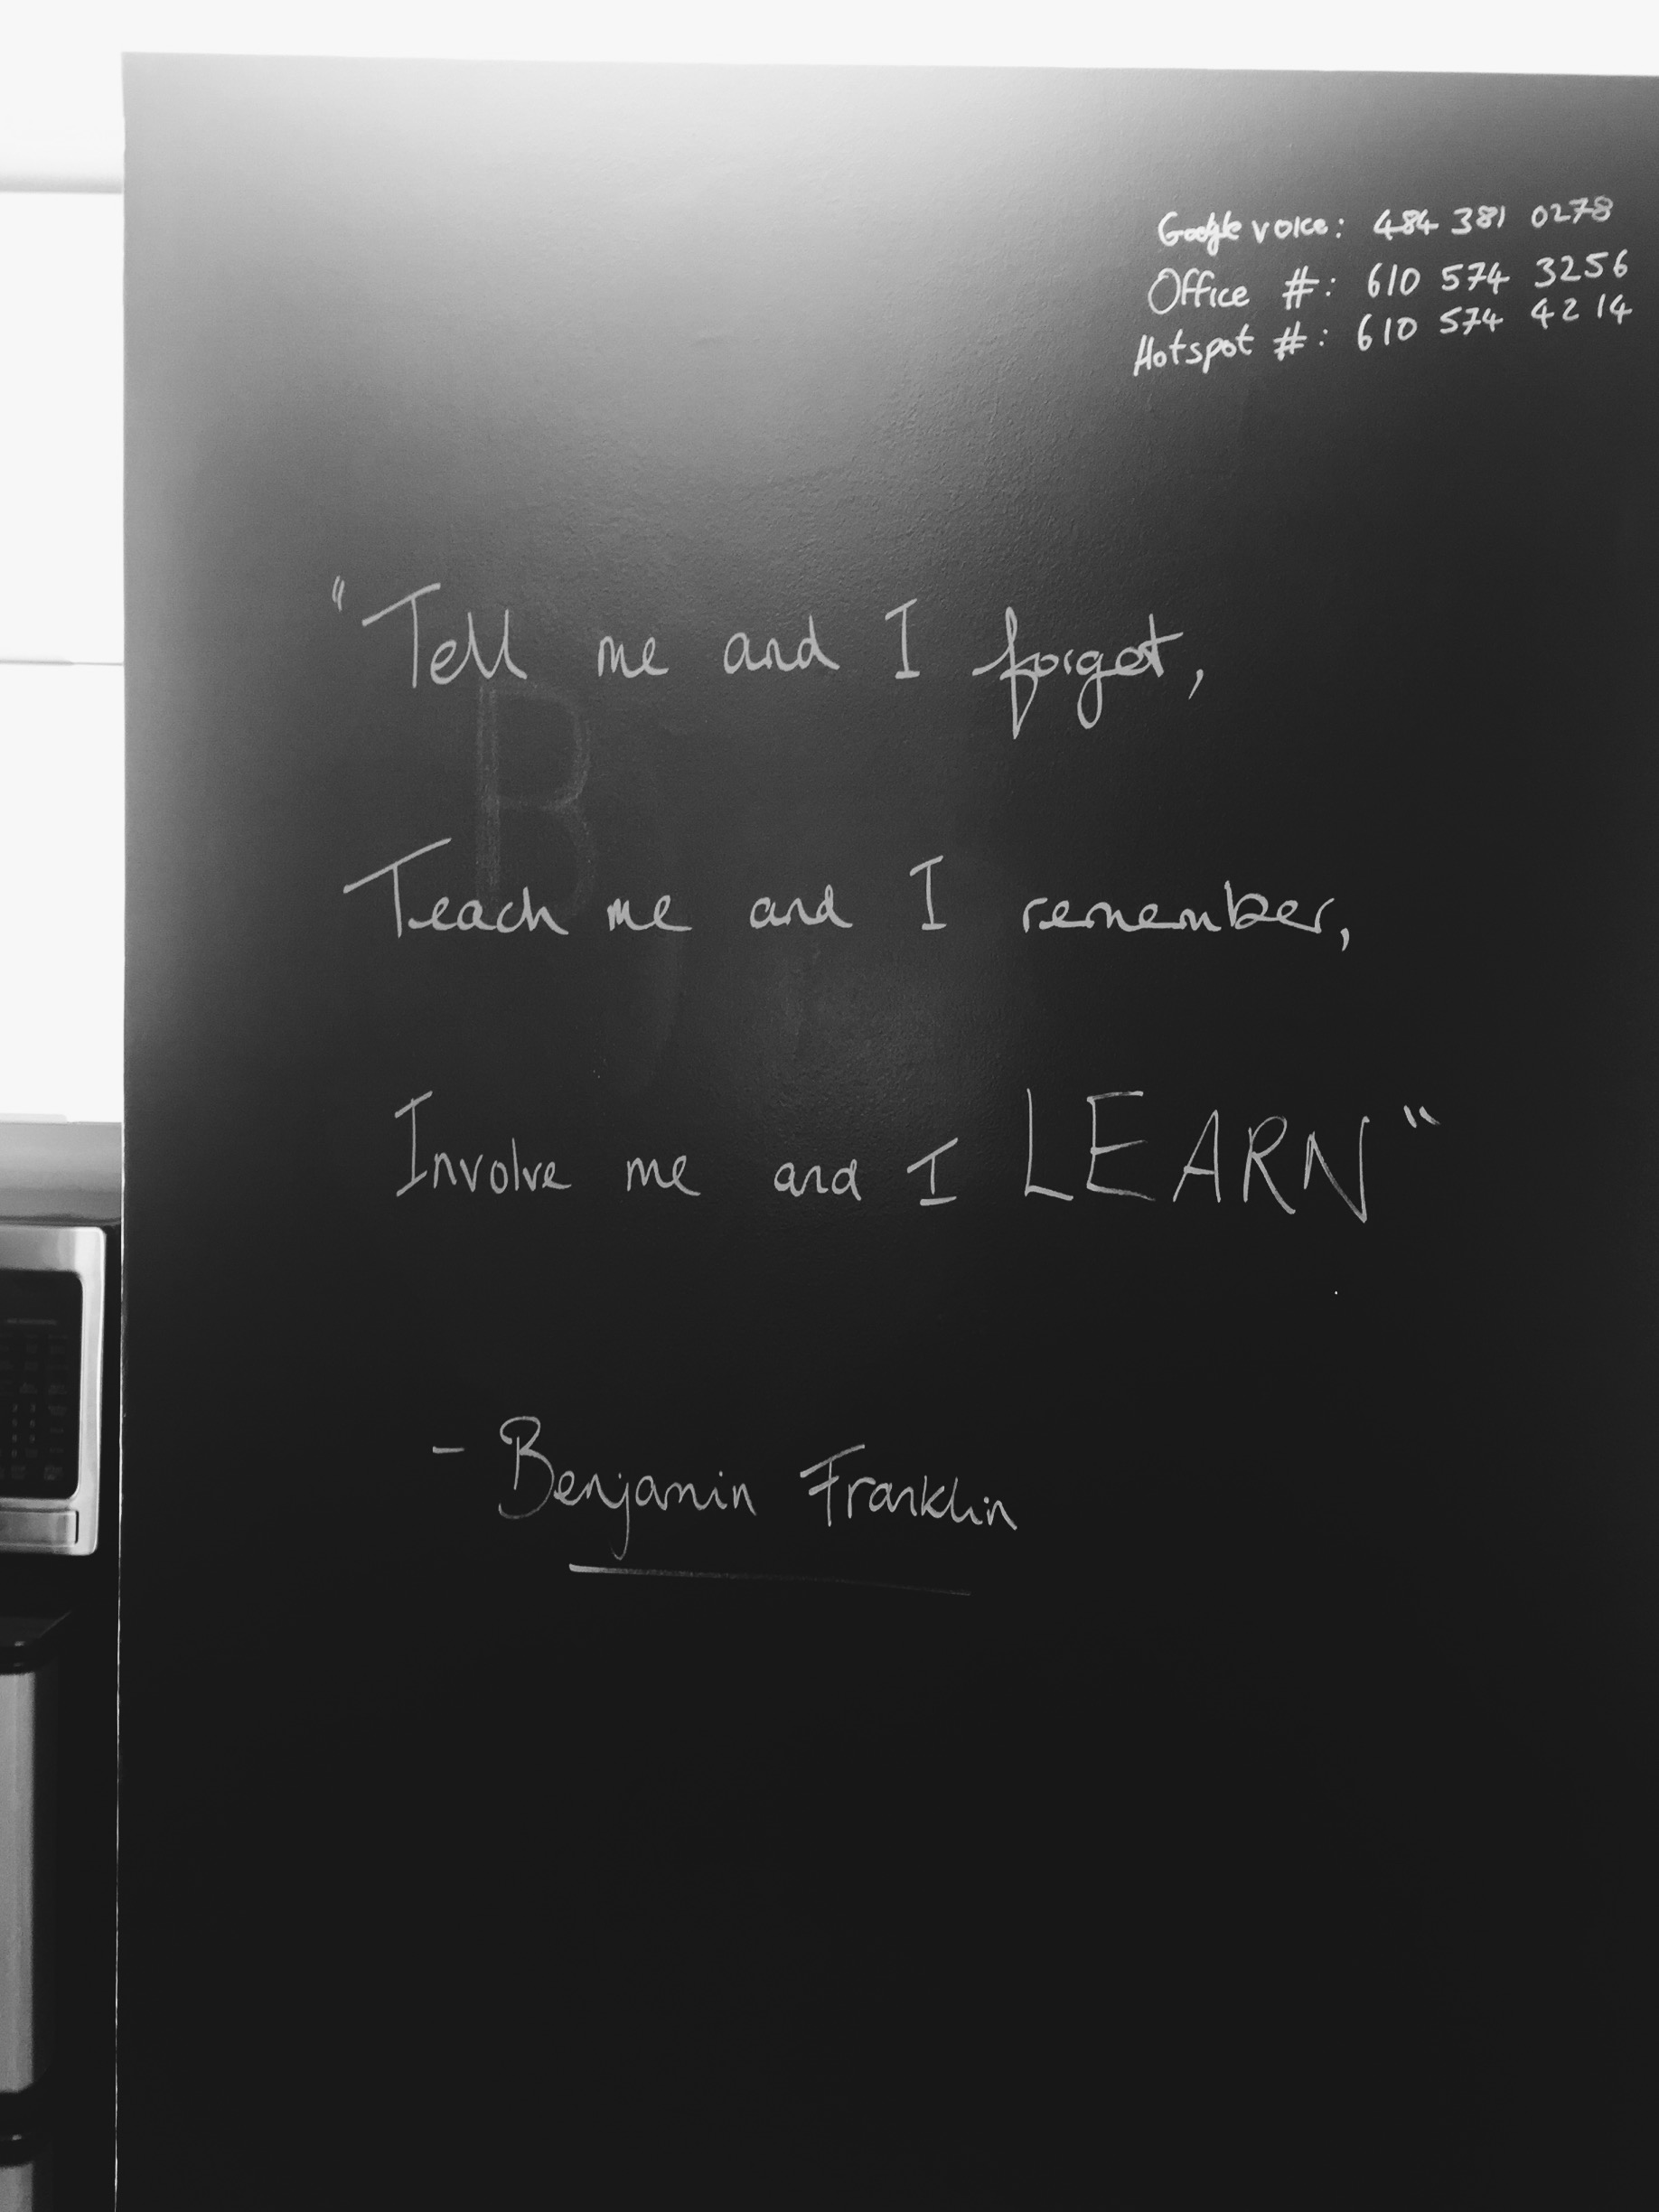 Google voice: 484 381 0278
Office #: 610 574 3256
Hotspot #: 610 574 4214
"Tell me and I forget,
B
Teach me and I remember,
Involve me and I LEARN"
- Benjamin Franklin